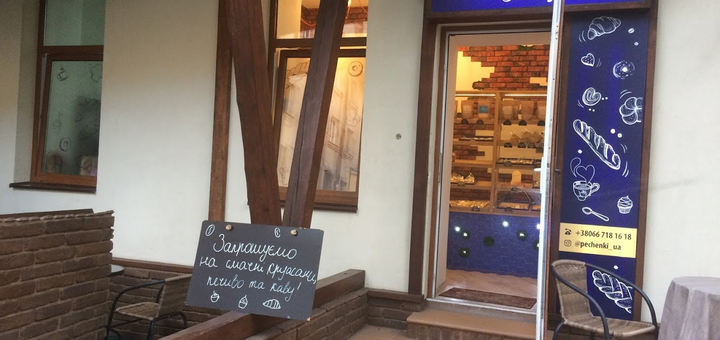 Запрошуємо
на смачні круасани,
печиво та каву!
+38066 718 16 18
@pechenki_ua